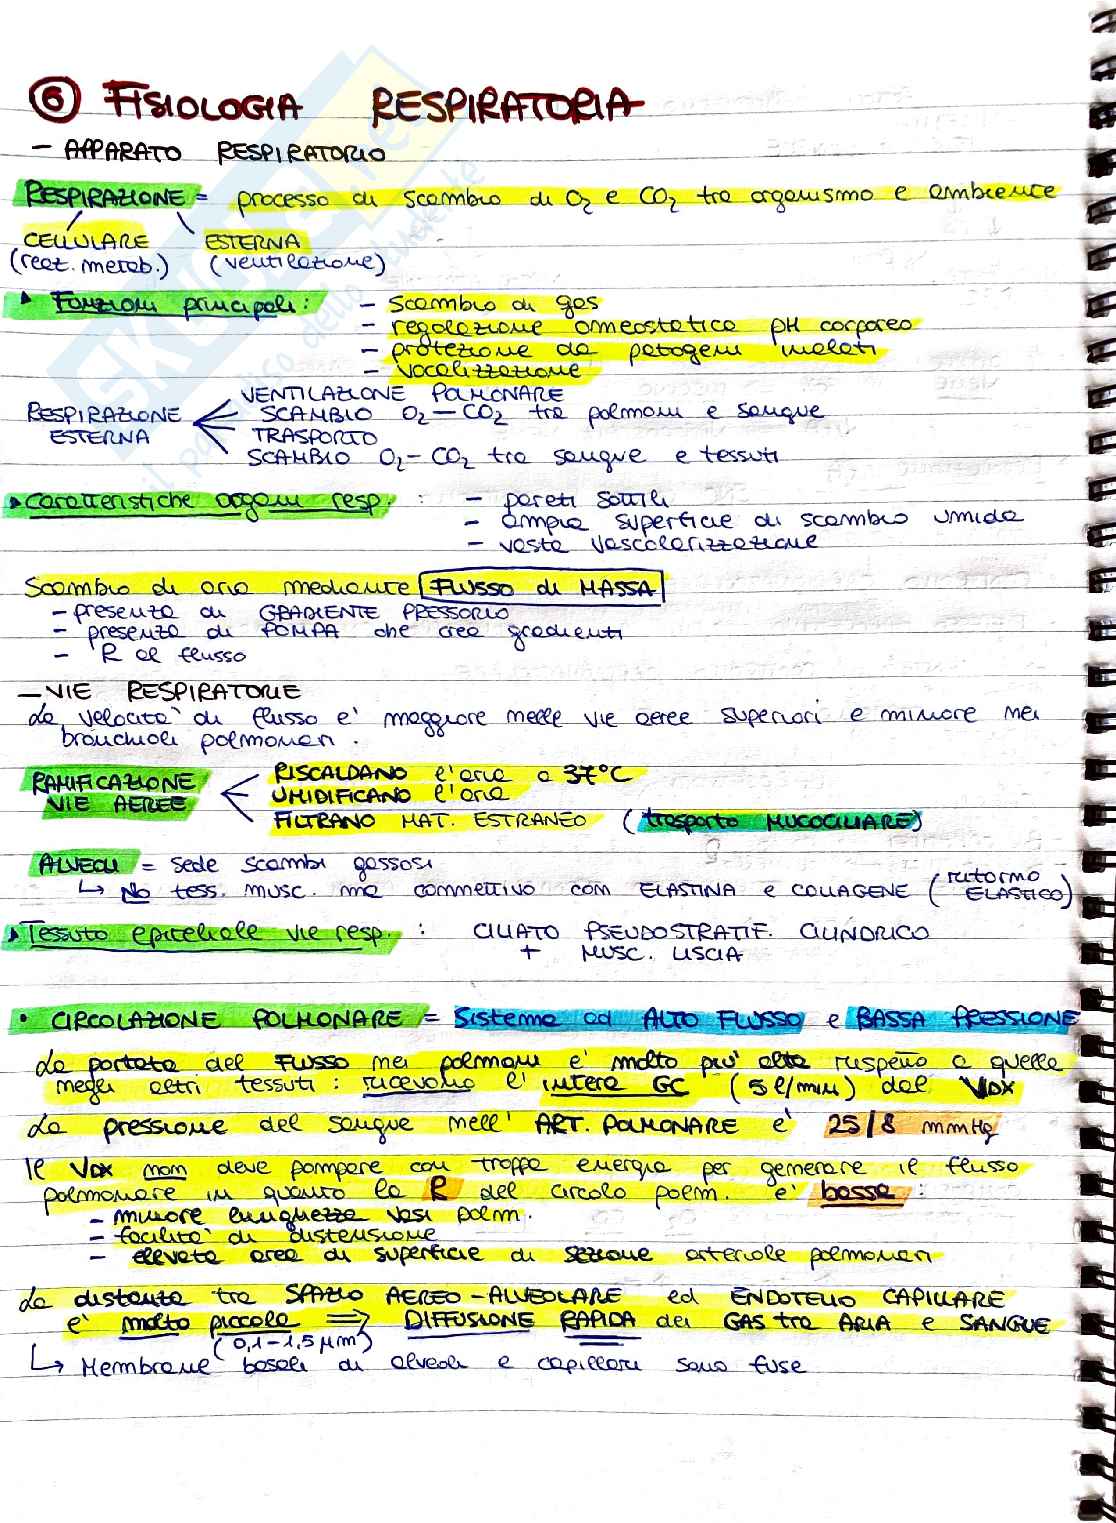 ⑥ FISIOLOGIA RESPIRATORIA
- APPARATO RESPIRATORIO
RESPIRAZIONE = processo di scambio di O₂ e CO₂ tra organismo e ambiente
CELLULARE ESTERNA
(reaz. metab.) (ventilazione)
Funzioni principali: - Scambio di gas
- regolazione omeostatica pH corporeo
- protezione da patogeni inalati
- vocalizzazione
VENTILAZIONE POLMONARE
RESPIRAZIONE SCAMBIO O₂-CO₂ tra polmoni e sangue
ESTERNA TRASPORTO
SCAMBIO O₂-CO₂ tra sangue e tessuti
caratteristiche organi resp. : - pareti sottili
- ampia superficie di scambio umida
- vasta vascolarizzazione
Scambio di aria mediante FLUSSO di MASSA
- presenza di GRADIENTE PRESSORIO
- presenza di POMPA che crea gradienti
- R al flusso
- VIE RESPIRATORIE
La velocità di flusso e' maggiore nelle vie aeree superiori e minore nei
bronchioli polmonari.
RAMIFICAZIONE RISCALDANO l'aria a 37°C
VIE AEREE UMIDIFICANO l'aria
FILTRANO MAT. ESTRANEO (trasporto MUCOCILIARE)
ALVEOLI = sede scambi gassosi
↳ No tess. musc. ma connettivo con ELASTINA e COLLAGENE (ritorno ELASTICO)
Tessuto epiteliale vie resp. : CILIATO PSEUDOSTRATIF. CILINDRICO
+ MUSC. LISCIA
• CIRCOLAZIONE POLMONARE = Sistema ad ALTO FLUSSO e BASSA PRESSIONE
La portata del FLUSSO nei polmoni e' molto piu' alta rispetto a quella
negli altri tessuti : ricevono l' intera GC (5 l/min) dal VDX
La pressione del sangue nell' ART. POLMONARE e' 25/8 mmHg
Il VDX non deve pompare con troppa energia per generare il flusso
polmonare in quanto la R del circolo polm. e' bassa :
- minore lunghezza vasi polm.
- facilita' di distensione
- elevata area di superficie di sezione arteriole polmonari
La distanza tra SPAZIO AEREO-ALVEOLARE ed ENDOTELIO CAPILLARE
e' molto piccola ⇒ DIFFUSIONE RAPIDA dei GAS tra ARIA e SANGUE
(0,1-1,5 μm)
↳ Membrane basali di alveoli e capillari sono fuse